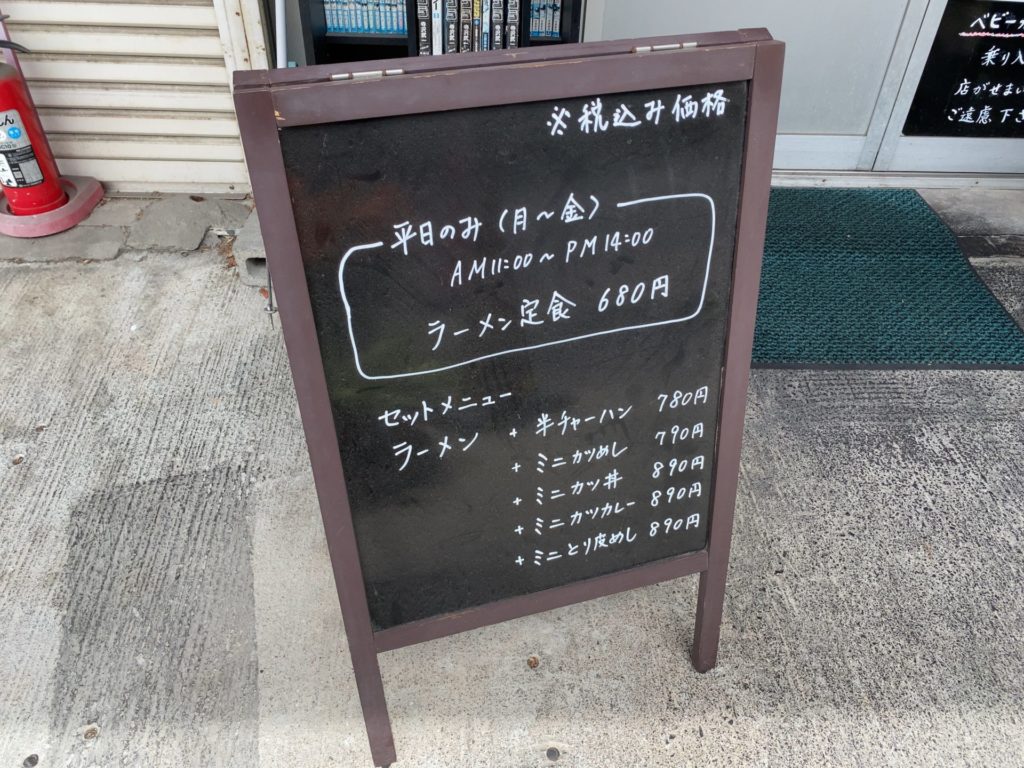 ※税込み価格
平日のみ(月〜金)
AM11:00〜PM14:00
ラーメン定食 680円
セットメニュー
ラーメン + 半チャーハン 780円
+ ミニカツめし 790円
+ ミニカツ丼 890円
+ ミニカツカレー 890円
+ ミニとり皮めし 890円
ベビーカ
乗り入
店がせまい
ご遠慮下さ